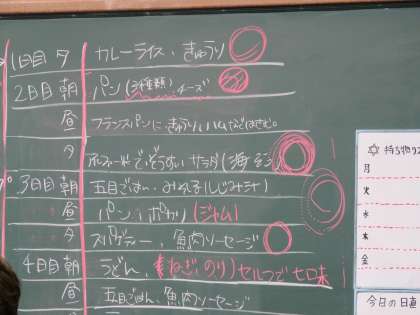 1日目 夕 カレーライス、きゅうり
2日目 朝 パン(3種類)、チーズ
昼 フランスパンに、きゅうり、ハムなどはさむ。
夕 でぞうすい、サラダ(海
3日目 朝 五目ごはん、みそ汁(しじみ汁)
昼 パン、(ジャム)
夕 スパゲティー、魚肉ソーセージ
4日目 朝 うどん、(ねぎ、のり)セルフで七味
昼 五目ごはん、魚肉ソーセージ
持ち物
月
火
水
木
金
今日の日直